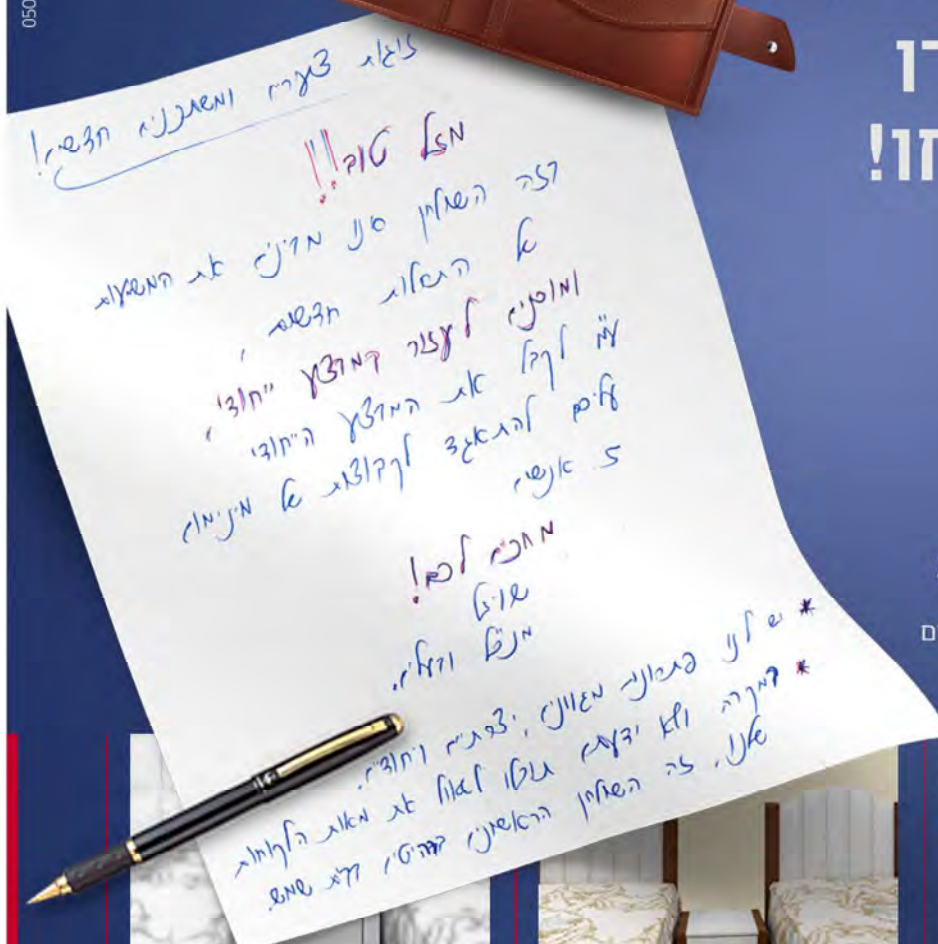 050
רו
חזו!
זוגות צעירים ומשתכנים חדשים!
מזל טוב!!!
בזה השולחן אנו מבינים את המשמעות
של התחלות חדשות,
ומוכנים לעזור במבצע ייחודי,
ע"מ לקבל את המבצע הייחודי
עליכם להתאגד לקבוצות של מינימום
5 אנשים
מחכים לכם!
מנכ"ל ובעלים.
* יש לנו פתרונות מגוונים, יצירתיים ויחודיים.
* במקרה ולא ידעתם תוכלו לשאול את מאות הלקוחות
שלנו. זה השולחן הראשונים ברהיטים בבית שמש.
ם